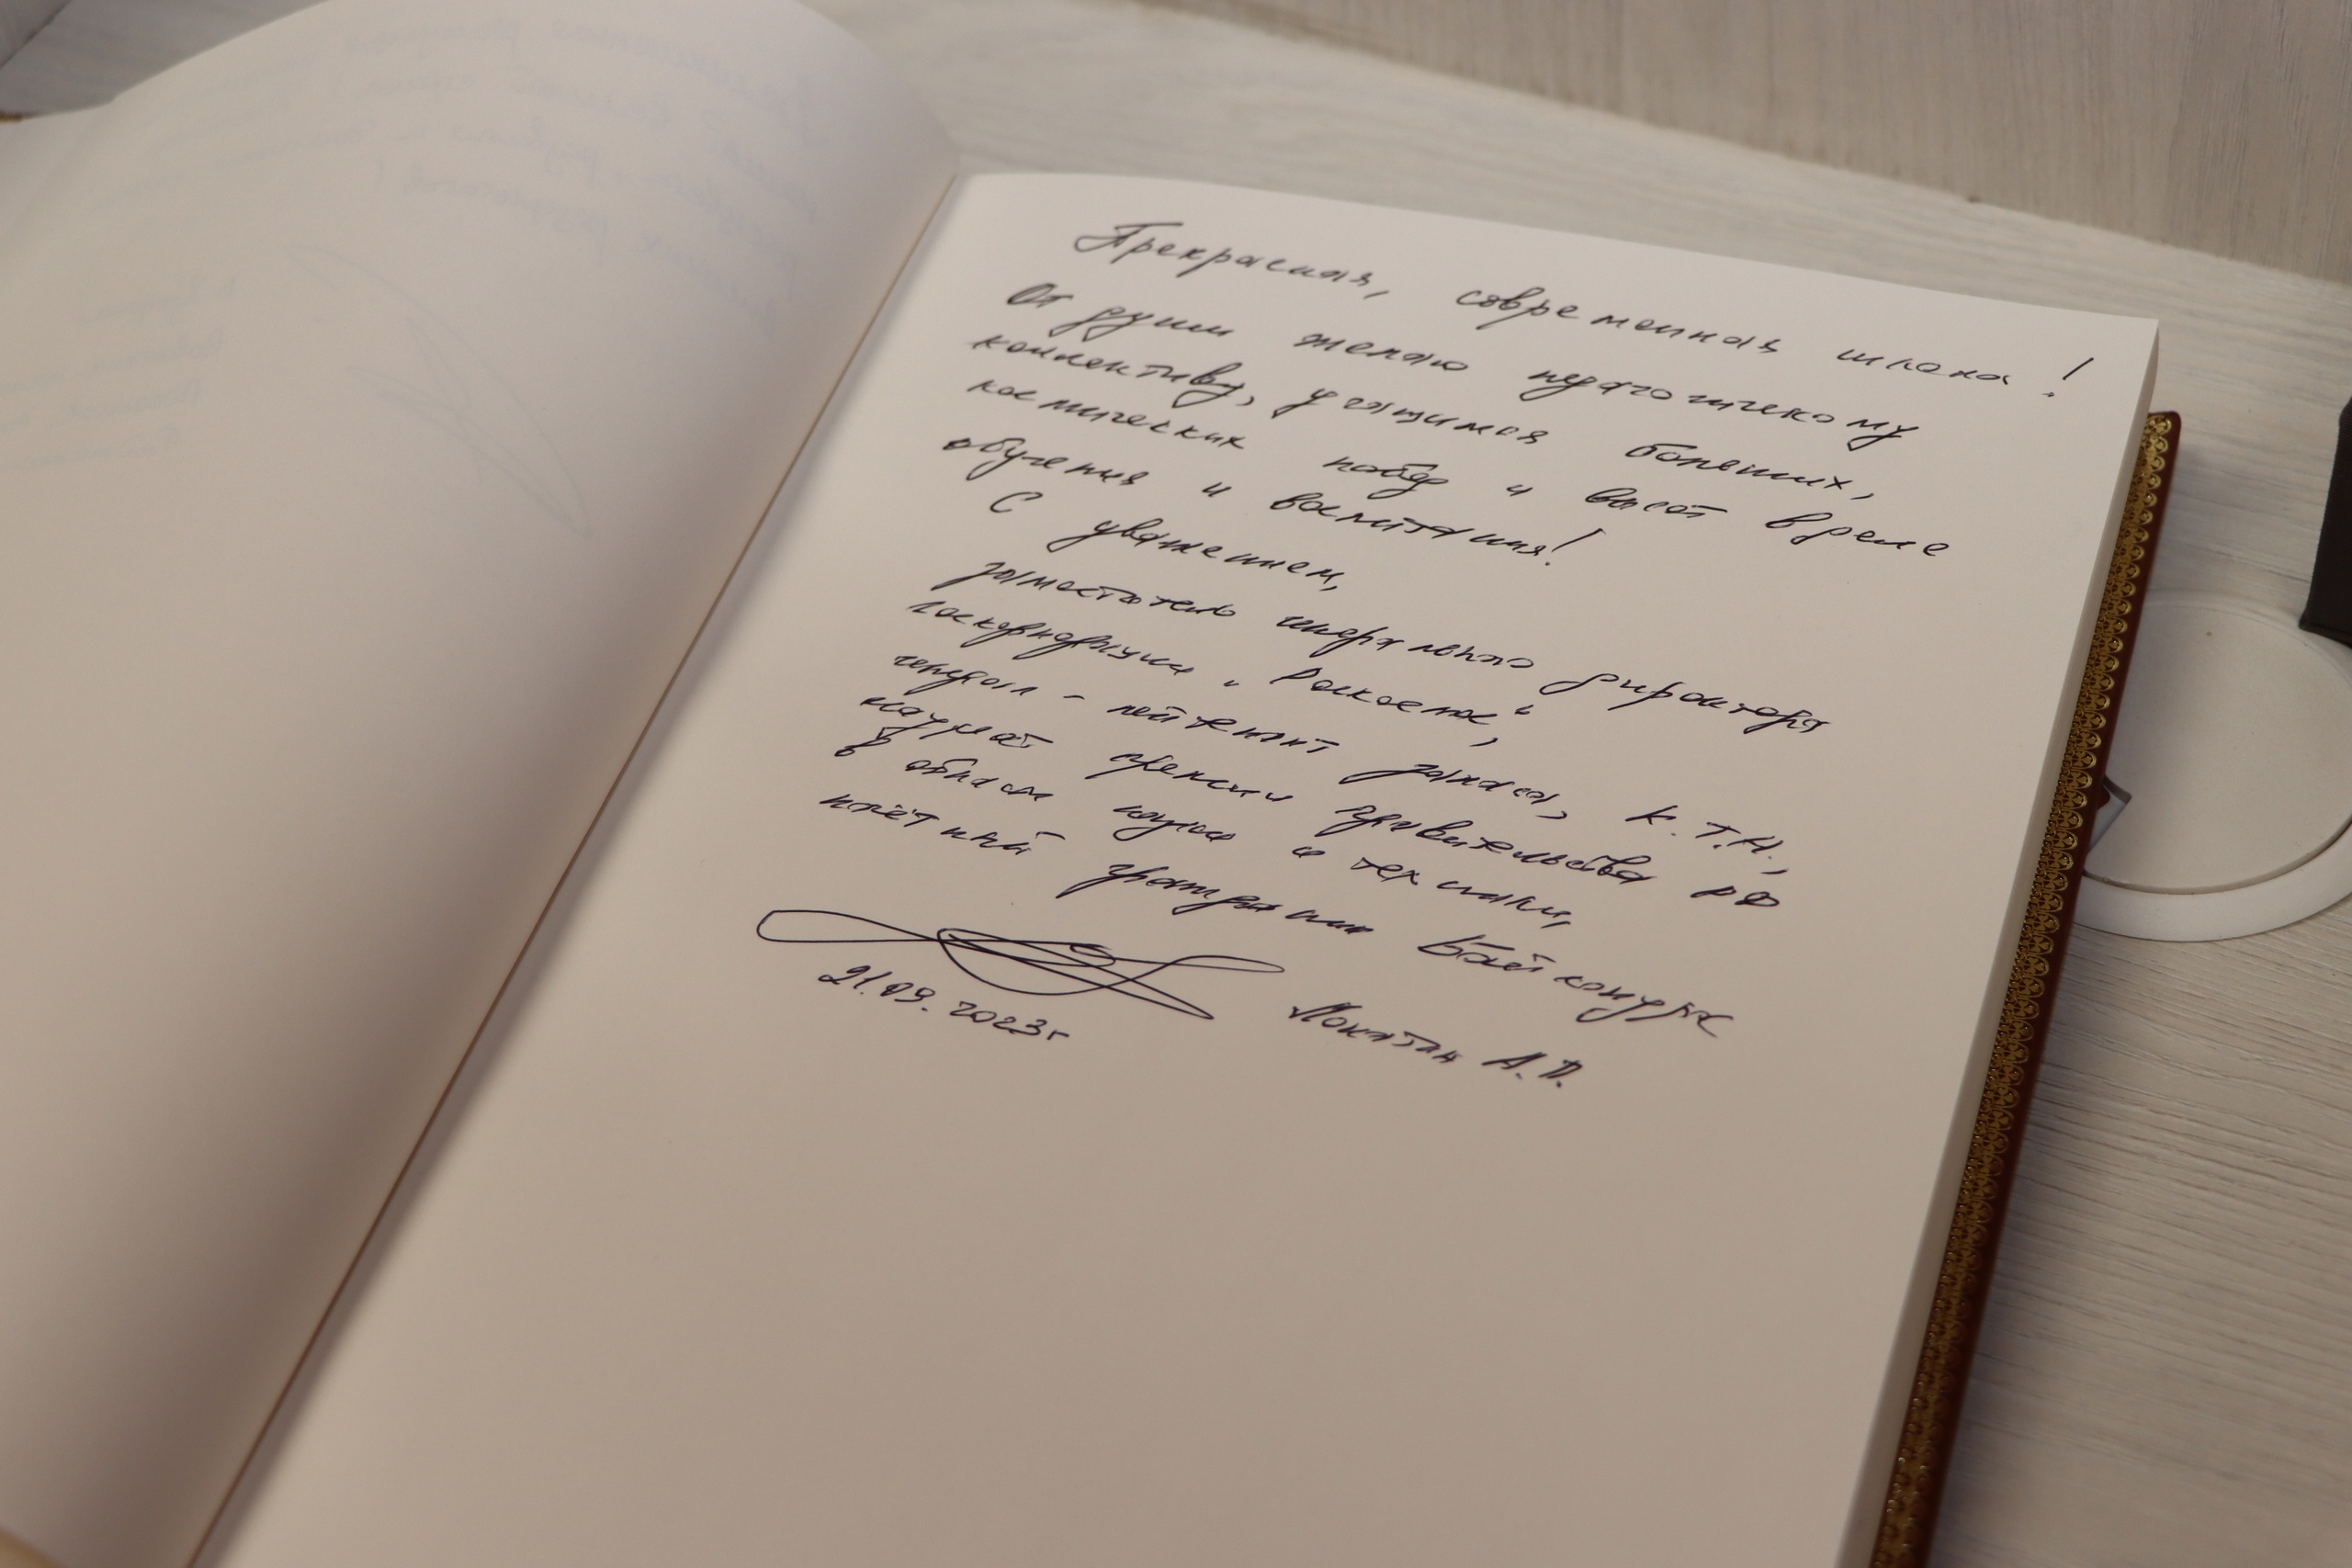 Прекрасная, современная школа!
От души желаю педагогическому
коллективу, учащимся больших,
космических побед и высот в деле
обучения и воспитания!
С уважением,
заместитель генерального директора
госкорпорации "Роскосмос",
генерал-лейтенант запаса, к.т.н.,
лауреат премии правительства РФ
в области науки и техники,
почётный гражданин Байконура
21.09.2023г
А.П.